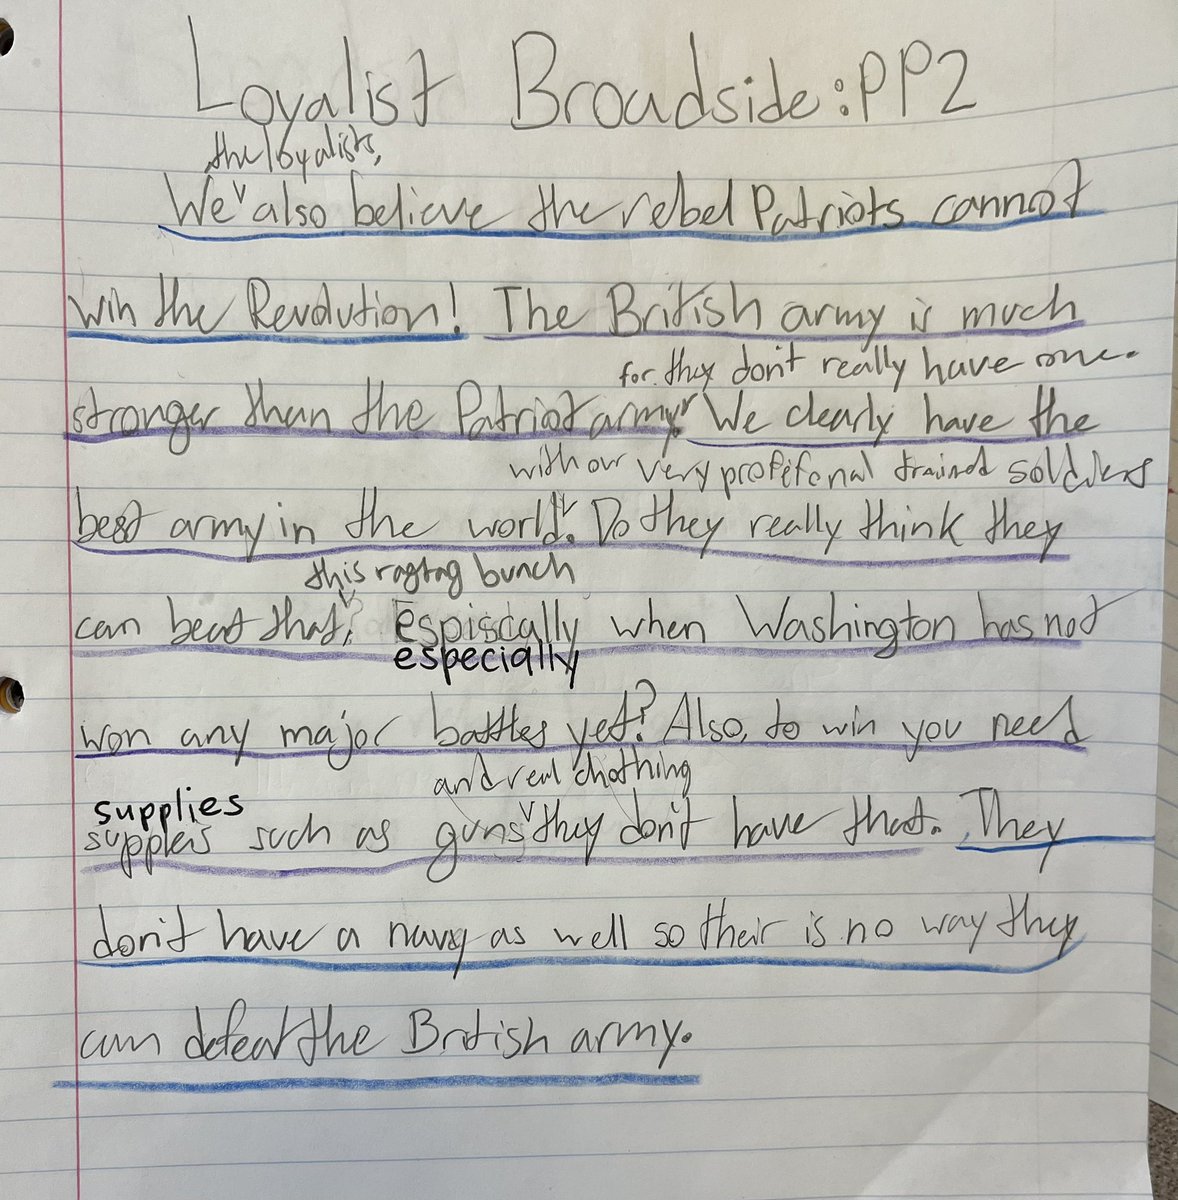 Loyalist Broadside: PP2
the loyalists,
We also believe the rebel Patriots cannot
win the Revolution! The British army is much
for they don't really have one.
stronger than the Patriot army. We clearly have the
with our very profefonal trained soldiers
best army in the world. Do they really think they
this ragtag bunch
can beat that, espiscally when Washington has not
especially
won any major battles yet? Also, to win you need
and real chothing
supplies
supplers such as guns they don't have that. They
don't have a navy as well so their is no way they
can defeat the British army.